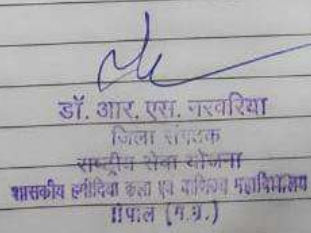 डॉ. आर. एस. नरवरिया
जिला संगठक
राष्ट्रीय सेवा योजना
शासकीय हमीदिया कला एवं वाणिज्य महाविद्यालय
भोपाल (म.प्र.)